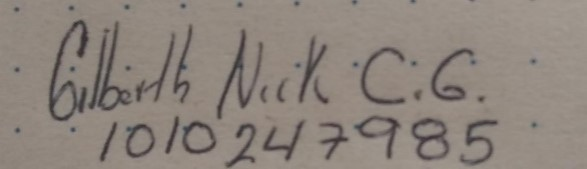 Gilberth Nick C.G.
1010247985